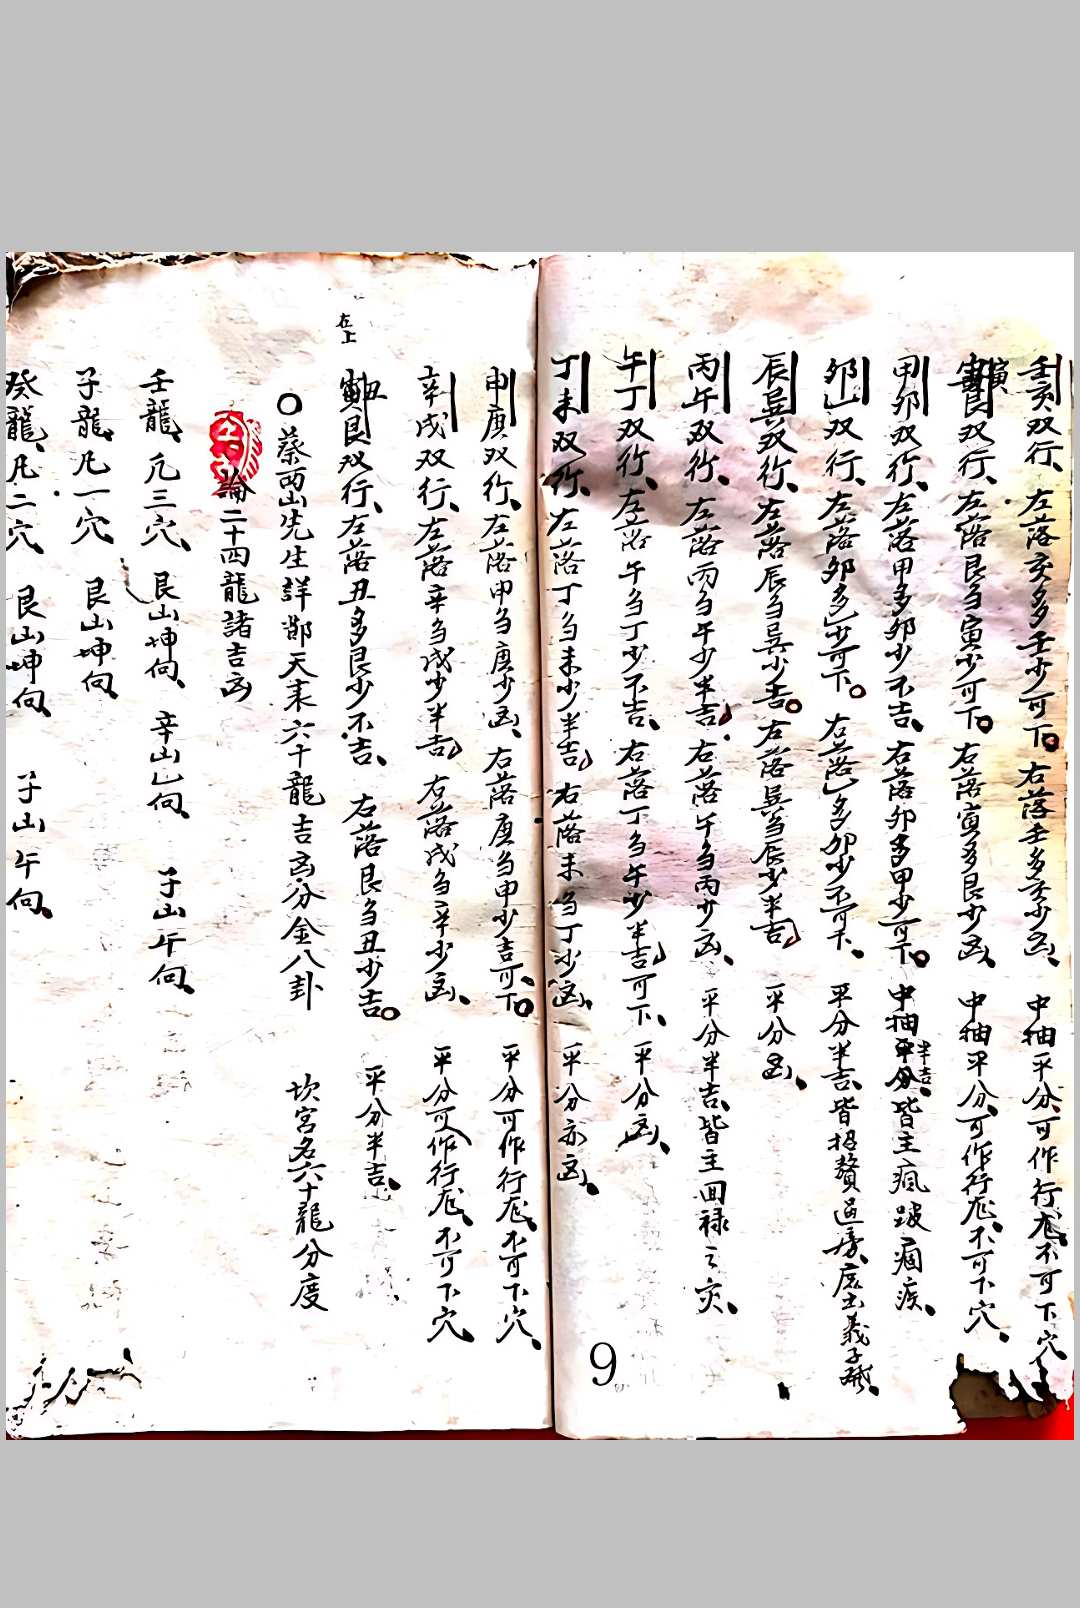 壬亥双行、左落亥多壬少可下。右落壬多亥少凶、中抽平分、可作行龙、不可下穴、
寅艮双行、左落艮多寅少可下。右落寅多艮少凶、中抽平分、可作行龙、不可下穴、
甲卯双行、左落甲多卯少不吉、右落卯多甲少可下。中抽平分半吉、皆主疯跛痼疾、
卯乙双行、左落卯多乙少可下。右落乙多卯少不可下、平分半吉、皆招赘过房、庶出義子
辰巽双行、左落辰多巽少吉。右落巽多辰少半吉、平分凶、
丙午双行、左落丙多午少半吉、右落午多丙少凶、平分半吉、皆主回禄之灾、
午丁双行、左落午多丁少不吉、右落丁多午少半吉可下、平分凶、
丁未双行、左落丁多未少半吉、右落未多丁少凶、平分亦凶、
9
申庚双行、左落申多庚少凶、右落庚多申少吉可下。平分可作行龙、不可下穴、
辛戌双行、左落辛多戌少半吉、右落戌多辛少凶、平分可作行龙、不可下穴、
在上
丑艮双行、左落丑多艮少不吉、右落艮多丑少吉。平分半吉、
○蔡西山先生詳鄭天来六十龍吉凶分金八卦 坎宮名六十龍分度
論二十四龍諸吉凶
壬龍、凢三穴、艮山坤向、辛山乙向、子山午向、
子龍、凢一穴、艮山坤向、
癸龍、凢二穴、艮山坤向、子山午向、